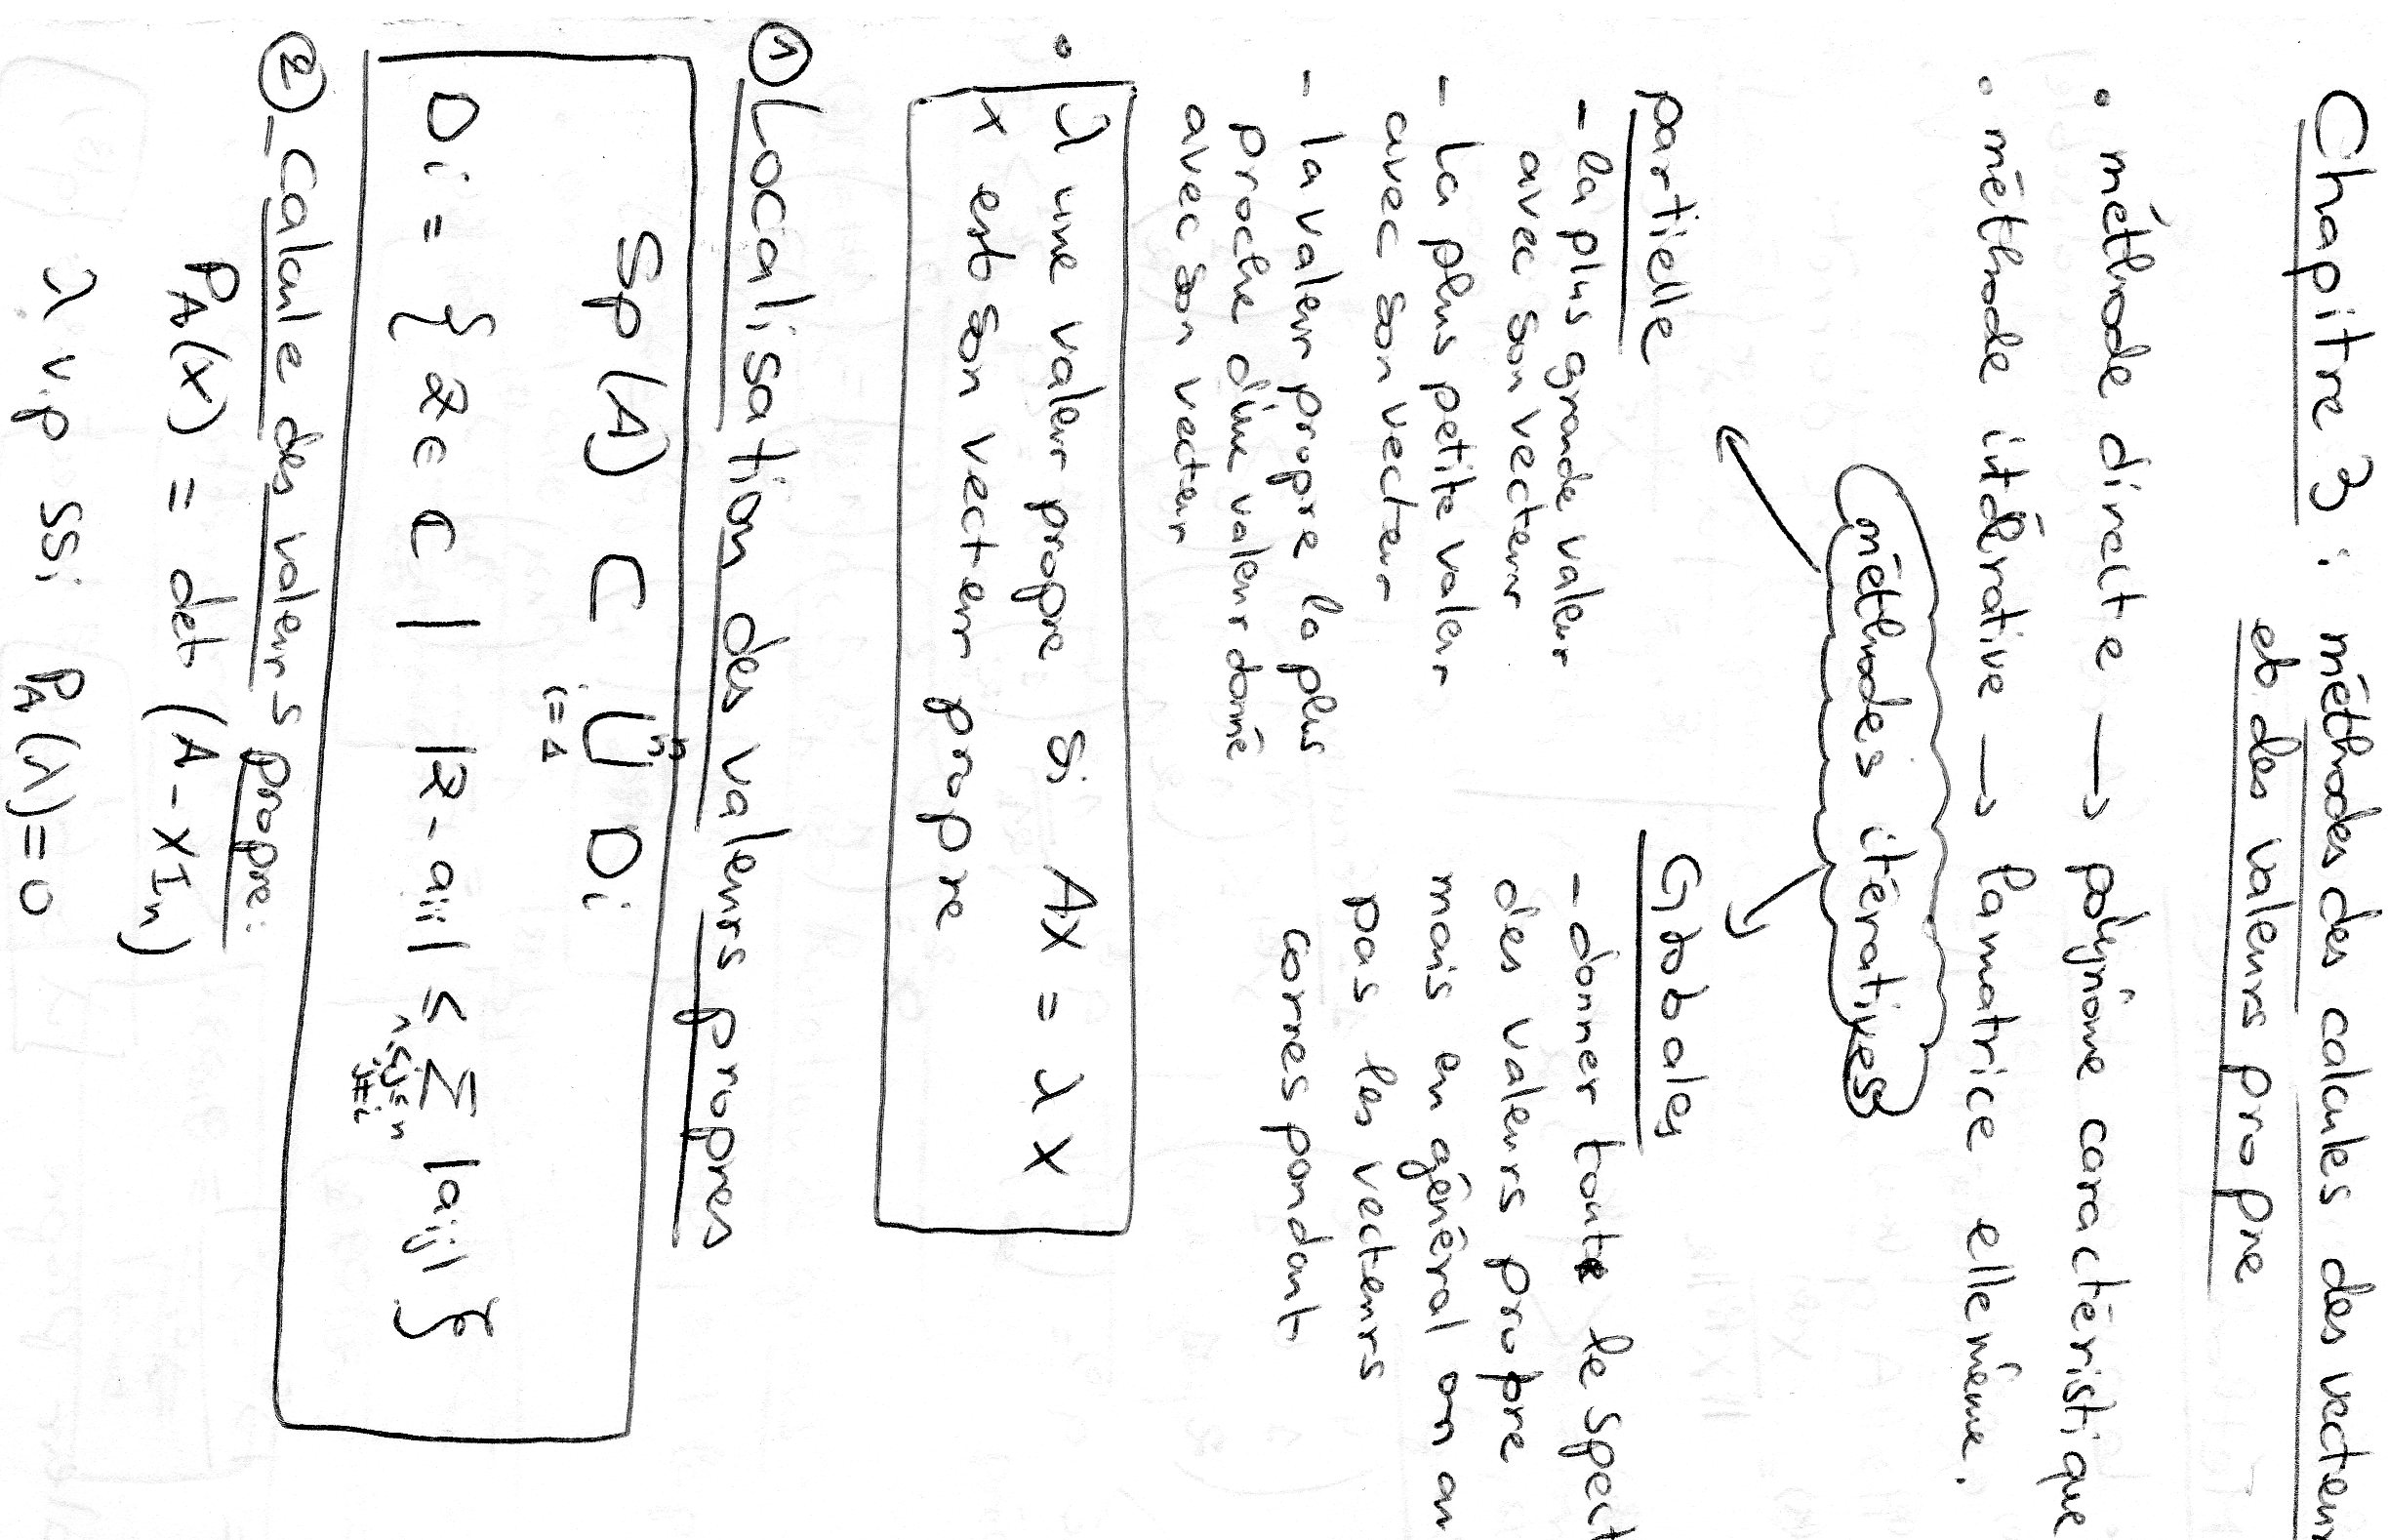 Chapitre 3 : méthodes des calcules des vecteurs
et des valeurs propre
• méthode directe → polynôme caractéristique
• méthode intérative → la matrice elle même.
méthodes itératives
partielle
- la plus grande valeur
avec son vecteur
- La plus petite valeur
avec son vecteur
- la valeur propre la plus
proche d'une valeur donné
avec son vecteur
Globales
- donner toute le spect
des valeurs propre
mais en général on an
pas les vecteurs
correspondant
• λ une valeur propre si AX = λX
X est son vecteur propre
① Localisation des valeurs propres
Sp(A) ⊂ ⋃_{i=1}^{n} Di
Di = { z ∈ ℂ | |z - aii| ≤ Σ_{1≤j≤n, j≠i} |aij| }
② - Calcule des valeurs propre :
P_A(X) = det (A - X I_n)
λ v.p ssi P_A(λ) = 0